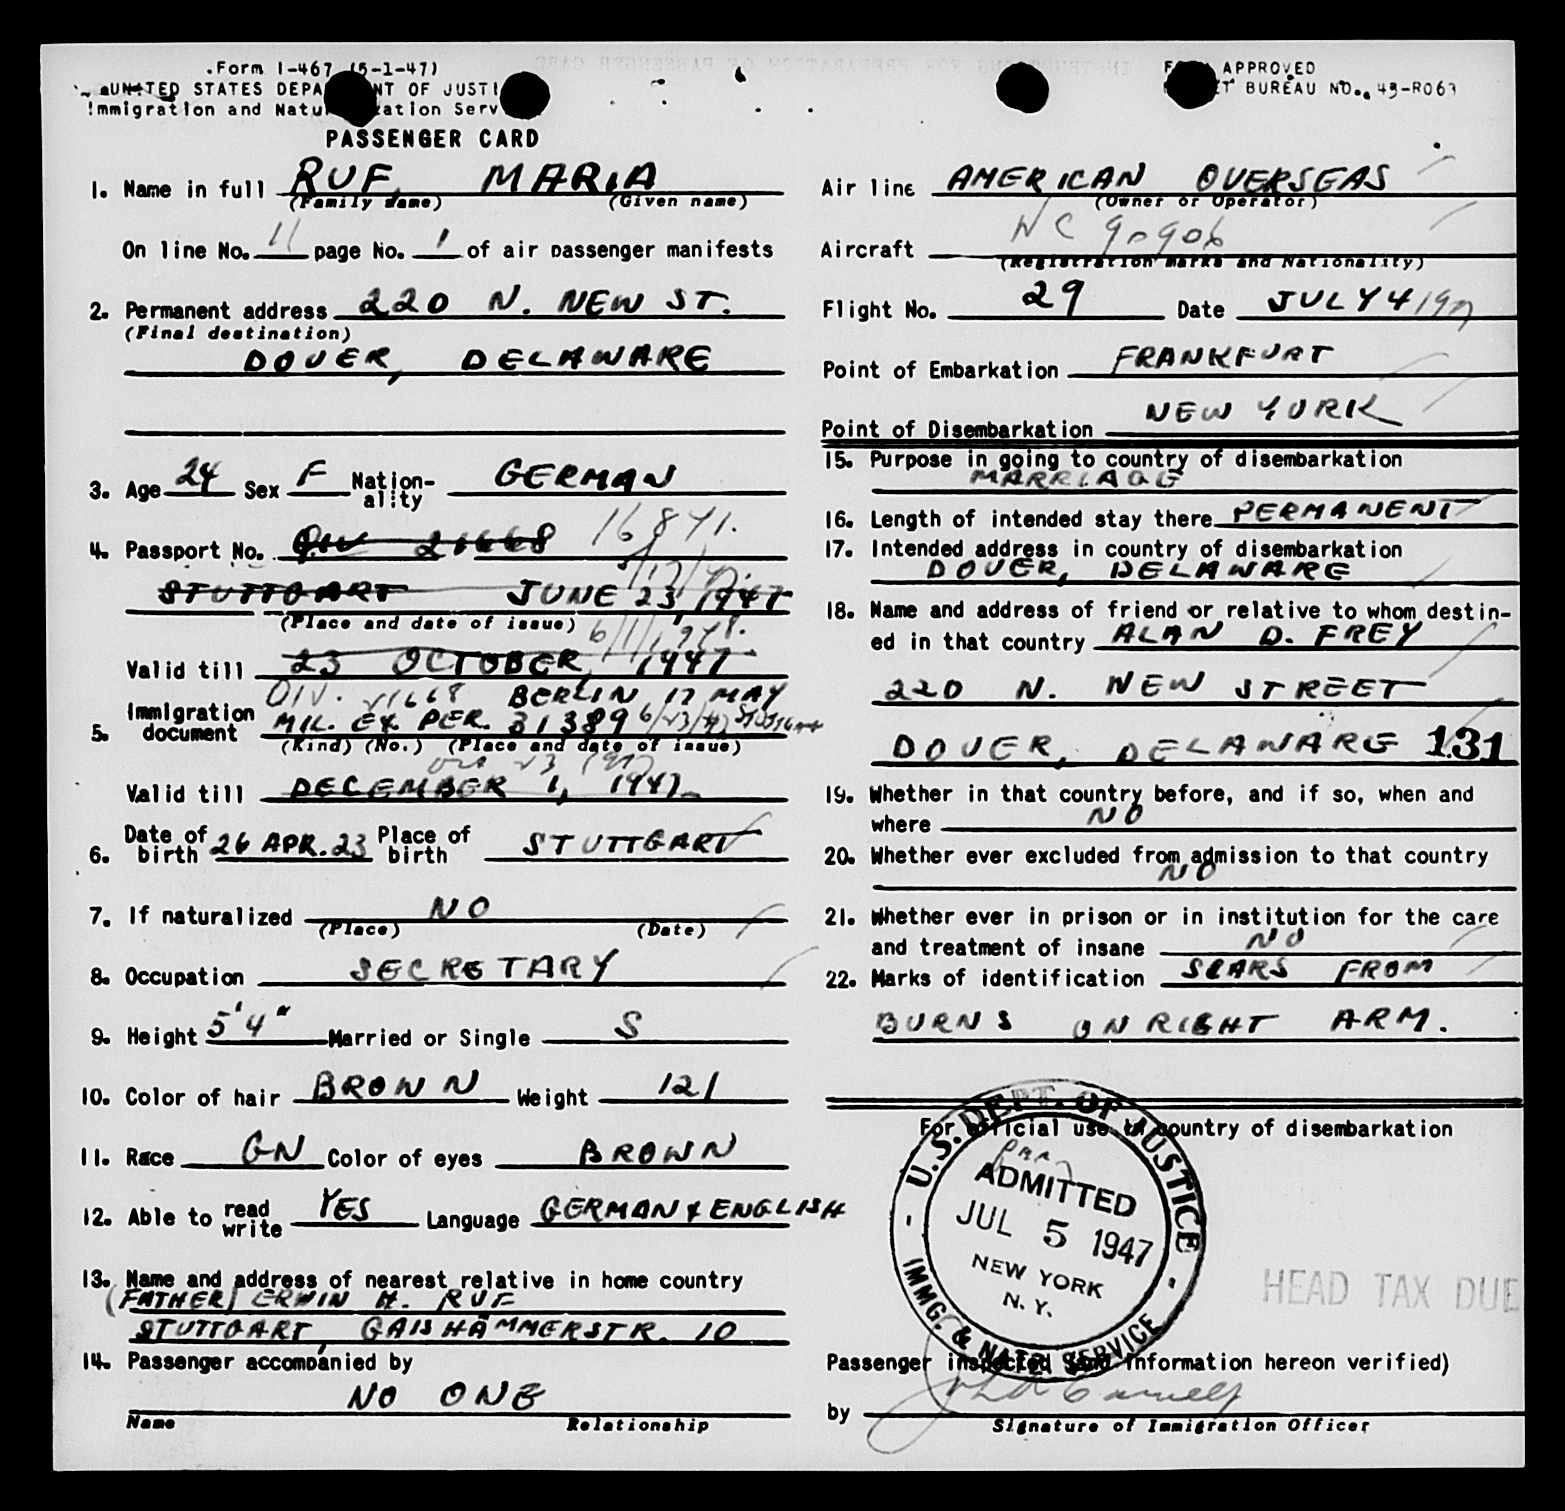 Form I-467 (5-1-47)
UNITED STATES DEPA NT OF JUSTI
Immigration and Natu zation Serv
PASSENGER CARD
1. Name in full RUF, MARIA
(Family name) (Given name)
On line No. 11 page No. 1 of air passenger manifests
2. Permanent address 220 N. NEW ST.
(Final destination)
DOVER, DELAWARE
3. Age 24 Sex F Nation-
ality GERMAN
4. Passport No. 21668 16871.
STUTTGART JUNE 23 1947
(Place and date of issue)
Valid till 23 OCTOBER, 1947
DIV. 21668 BERLIN 17 MAY
5. Immigration
document MIL. EX. PER. 31389 6/23/47 Stuttgart
(Kind) (No.) (Place and date of issue)
Oct 23 1947
Valid till DECEMBER 1, 1947
6. Date of
birth 26 APR. 23 Place of
birth STUTTGART
7. If naturalized NO
(Place) (Date)
8. Occupation SECRETARY
9. Height 5'4" Married or Single S
10. Color of hair BROWN Weight 121
11. Race GN Color of eyes BROWN
12. Able to read
write YES Language GERMAN & ENGLISH
13. Name and address of nearest relative in home country
(FATHER) ERWIN H. RUF
STUTTGART, GAISHÄMMERSTR. 10
14. Passenger accompanied by
NO ONE
Name Relationship
FO APPROVED
ET BUREAU NO. 43-R063
Air line AMERICAN OVERSEAS
(Owner or Operator)
Aircraft NC 90906
(Registration marks and Nationality)
Flight No. 29 Date JULY 4 1947
Point of Embarkation FRANKFURT
Point of Disembarkation NEW YORK
15. Purpose in going to country of disembarkation
MARRIAGE
16. Length of intended stay there PERMANENT
17. Intended address in country of disembarkation
DOVER, DELAWARE
18. Name and address of friend or relative to whom destin-
ed in that country ALAN D. FREY
220 N. NEW STREET
DOVER, DELAWARE 131
19. Whether in that country before, and if so, when and
where NO
20. Whether ever excluded from admission to that country
NO
21. Whether ever in prison or in institution for the care
and treatment of insane NO
22. Marks of identification SCARS FROM
BURNS ON RIGHT ARM.
For official use in country of disembarkation
U.S. DEPT. OF JUSTICE
ADMITTED
JUL 5 1947
NEW YORK
N. Y.
IMMG. & NATZ. SERVICE
HEAD TAX DUE
Passenger inspected (and information hereon verified)
by
Signature of Immigration Officer